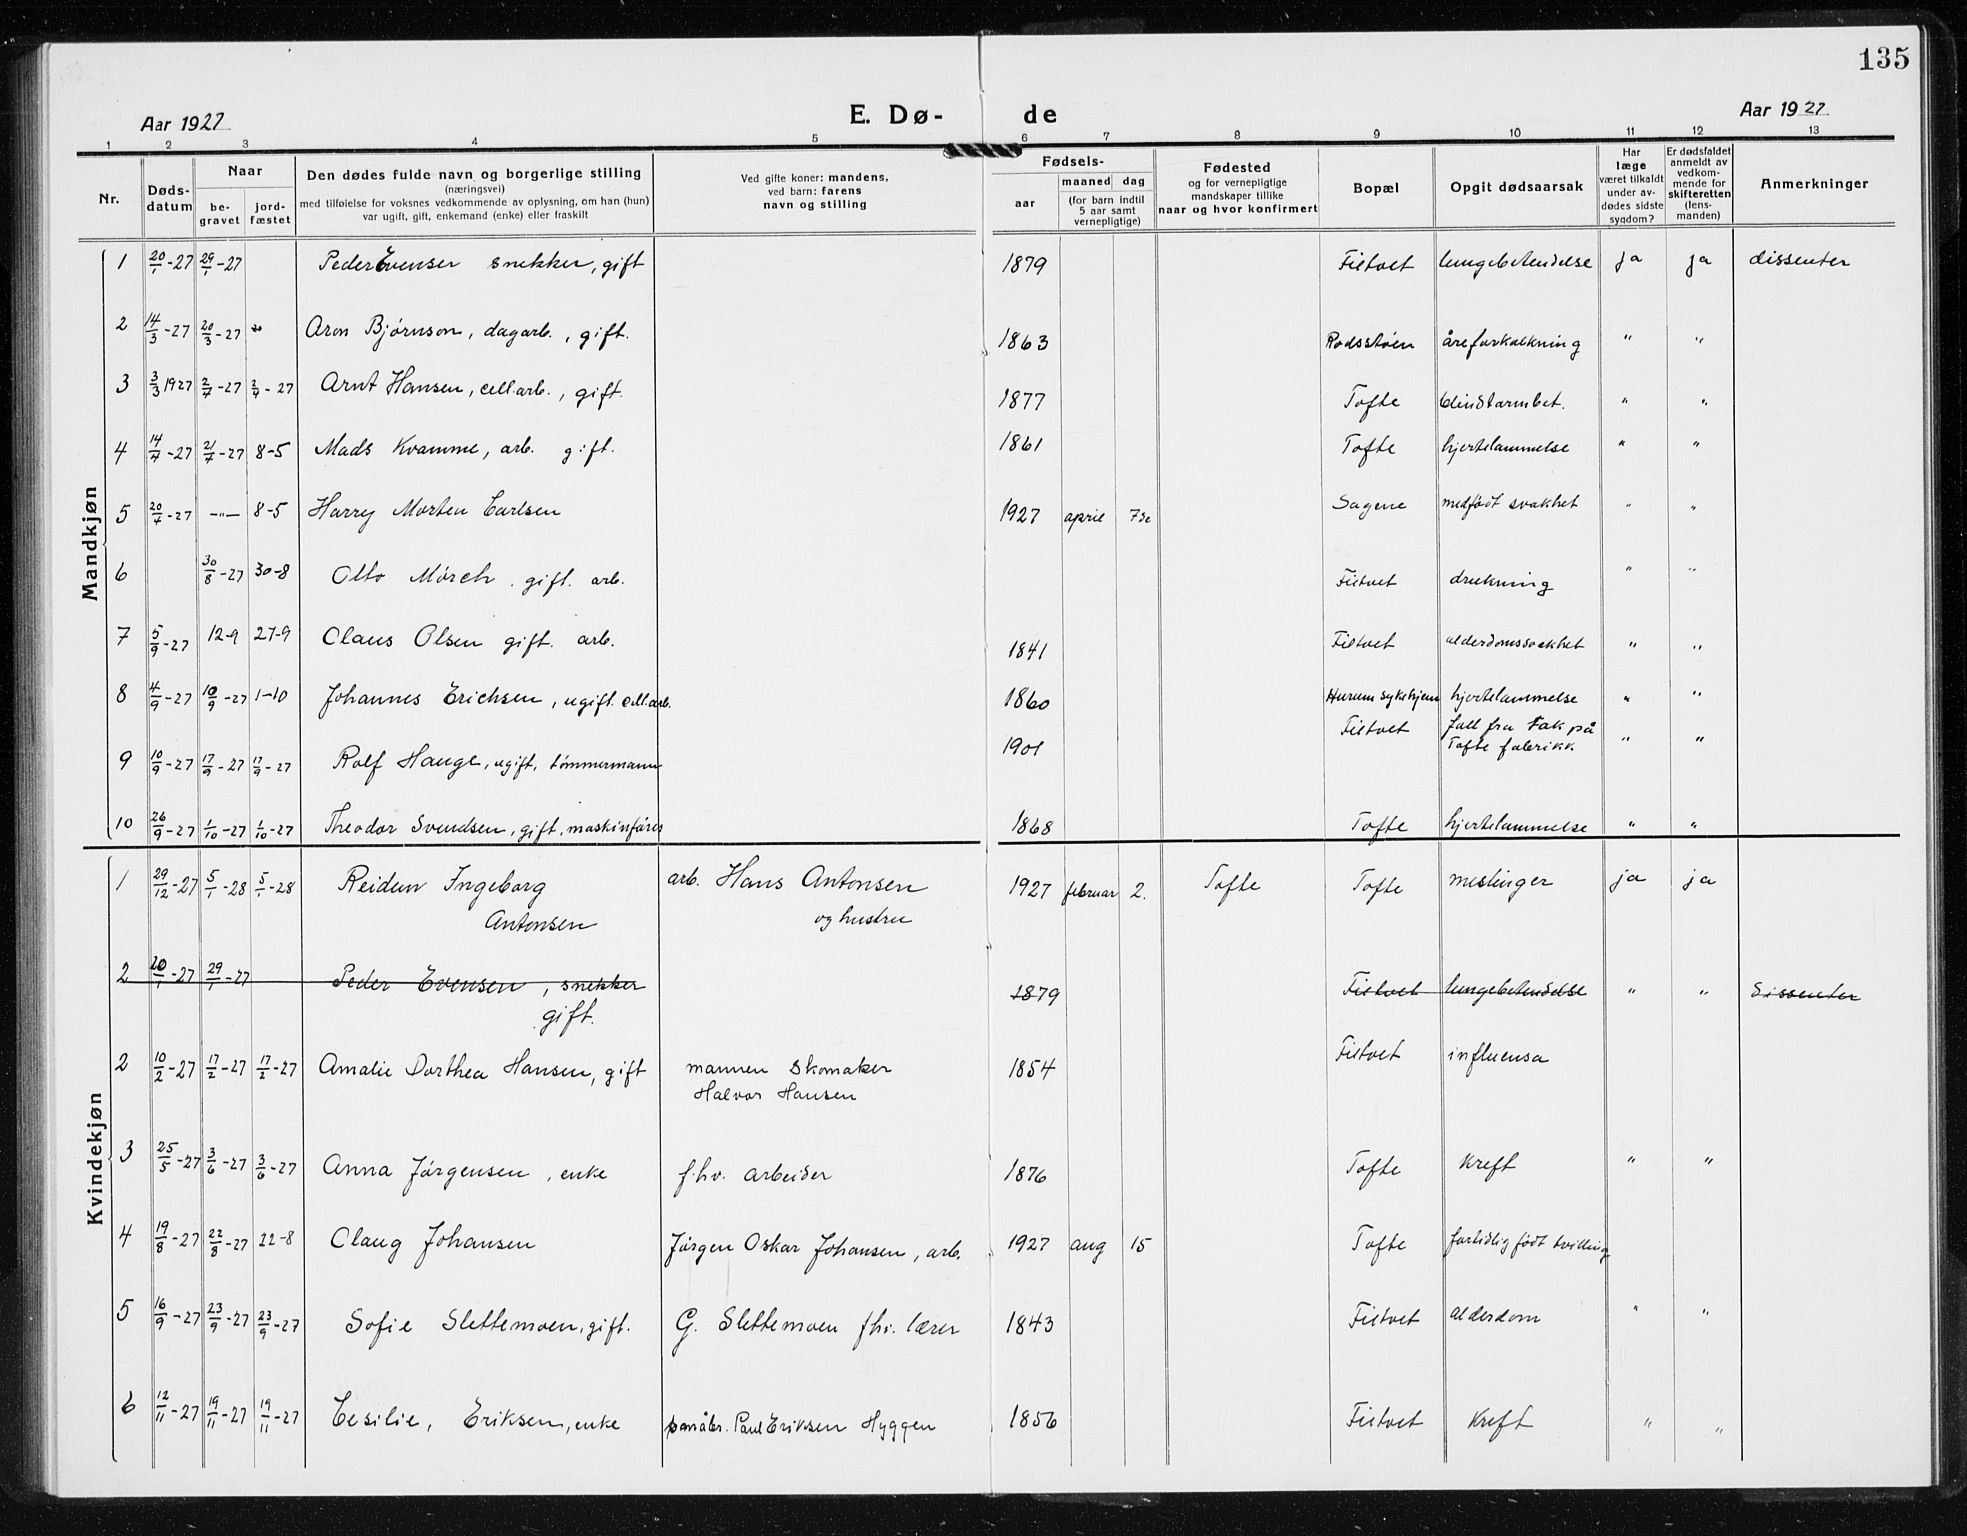 135
Aar 1927 E. Dø- de Aar 1927
1 2 3 4 5 6 7 8 9 10 11 12 13
Nr. Døds-datum Naar be-gravet jord-fæstet Den dødes fulde navn og borgerlige stilling (næringsvei) med tilføielse for voksnes vedkommende av oplysning, om han (hun) var ugift, gift, enkemand (enke) eller fraskilt Ved gifte koner: mandens, ved barn: farens navn og stilling Fødsels- aar maaned dag (for barn indtil 5 aar samt vernepligtige) Fødested og for vernepligtige mandskaper tillike naar og hvor konfirmert Bopæl Opgit dødsaarsak Har læge været tilkaldt under av-dødes sidste sygdom? Er dødsfaldet anmeldt av vedkom-mende for skifteretten (lens-manden) Anmerkninger
Mandkjøn
1 20/1-27 29/1-27 Peder Evensen snekker, gift 1879 Filtvet lungebetendelse ja ja dissenter
2 14/3-27 20/3-27 " Aron Bjørnson, dagarb., gift. 1863 Rødsstøen åreforkalkning " "
3 3/3 1927 2/4-27 2/4-27 Arnt Hansen, cell.arb., gift. 1877 Tofte blindtarmbet. " "
4 14/4-27 21/4-27 8-5 Mads Kvamme, arb. gift. 1861 Tofte hjertelammelse " "
5 20/4-27 -"- 8-5 Harry Morten Carlsen 1927 april 7de Sagene medfødt svakhet " "
6 30/8-27 30-8 Otto Mørch. gift. arb. Filtvet drukning " "
7 5/9-27 12-9 27-9 Claus Olsen gift. arb. 1841 Filtvet alderdomssvakhet " "
8 4/9-27 10/9-27 1-10 Johannes Erichsen, ugift. cell.arb. 1860 Hurum sykehjem hjertelammelse " "
9 10/9-27 17/9-27 17/9-27 Rolf Hauge, ugift, tømmermann 1901 Filtvet fall fra tak på
Tofte fabrikk " "
10 26/9-27 1/10-27 1/10-27 Theodor Svendsen, gift, maskinfører 1868 Tofte hjertelammelse " "
Kvindekjøn
1 29/12-27 5/1-28 5/1-28 Reidun Ingeborg arb. Hans Antonsen 1927 februar 2. Tofte Tofte meslinger ja ja
Antonsen og hustru
2 20/1-27 29/1-27 Peder Evensen, snekker 1879 Filtvet lungebetendelse " " dissenter
gift.
2 10/2-27 17/2-27 17/2-27 Amalie Dorthea Hansen, gift mannen skomaker 1854 Filtvet influensa
Halvor Hansen
3 25/5-27 3/6-27 3/6-27 Anna Jørgensen, enke f.hv. arbeider 1876 Tofte kreft " "
4 19/8-27 22/8-27 22-8 Olaug Johansen Jørgen Oskar Johansen, arb. 1927 aug 15 Tofte fortidlig født tvilling
5 16/9-27 23/9-27 23/9-27 Sofie Slettemoen, gift. G. Slettemoen fhv. lærer 1843 Filtvet alderdom " "
6 12/11-27 19/11-27 19/11-27 Cesilie, Eriksen, enke småbr. Paul Eriksen Hyggen 1856 Filtvet kreft " "